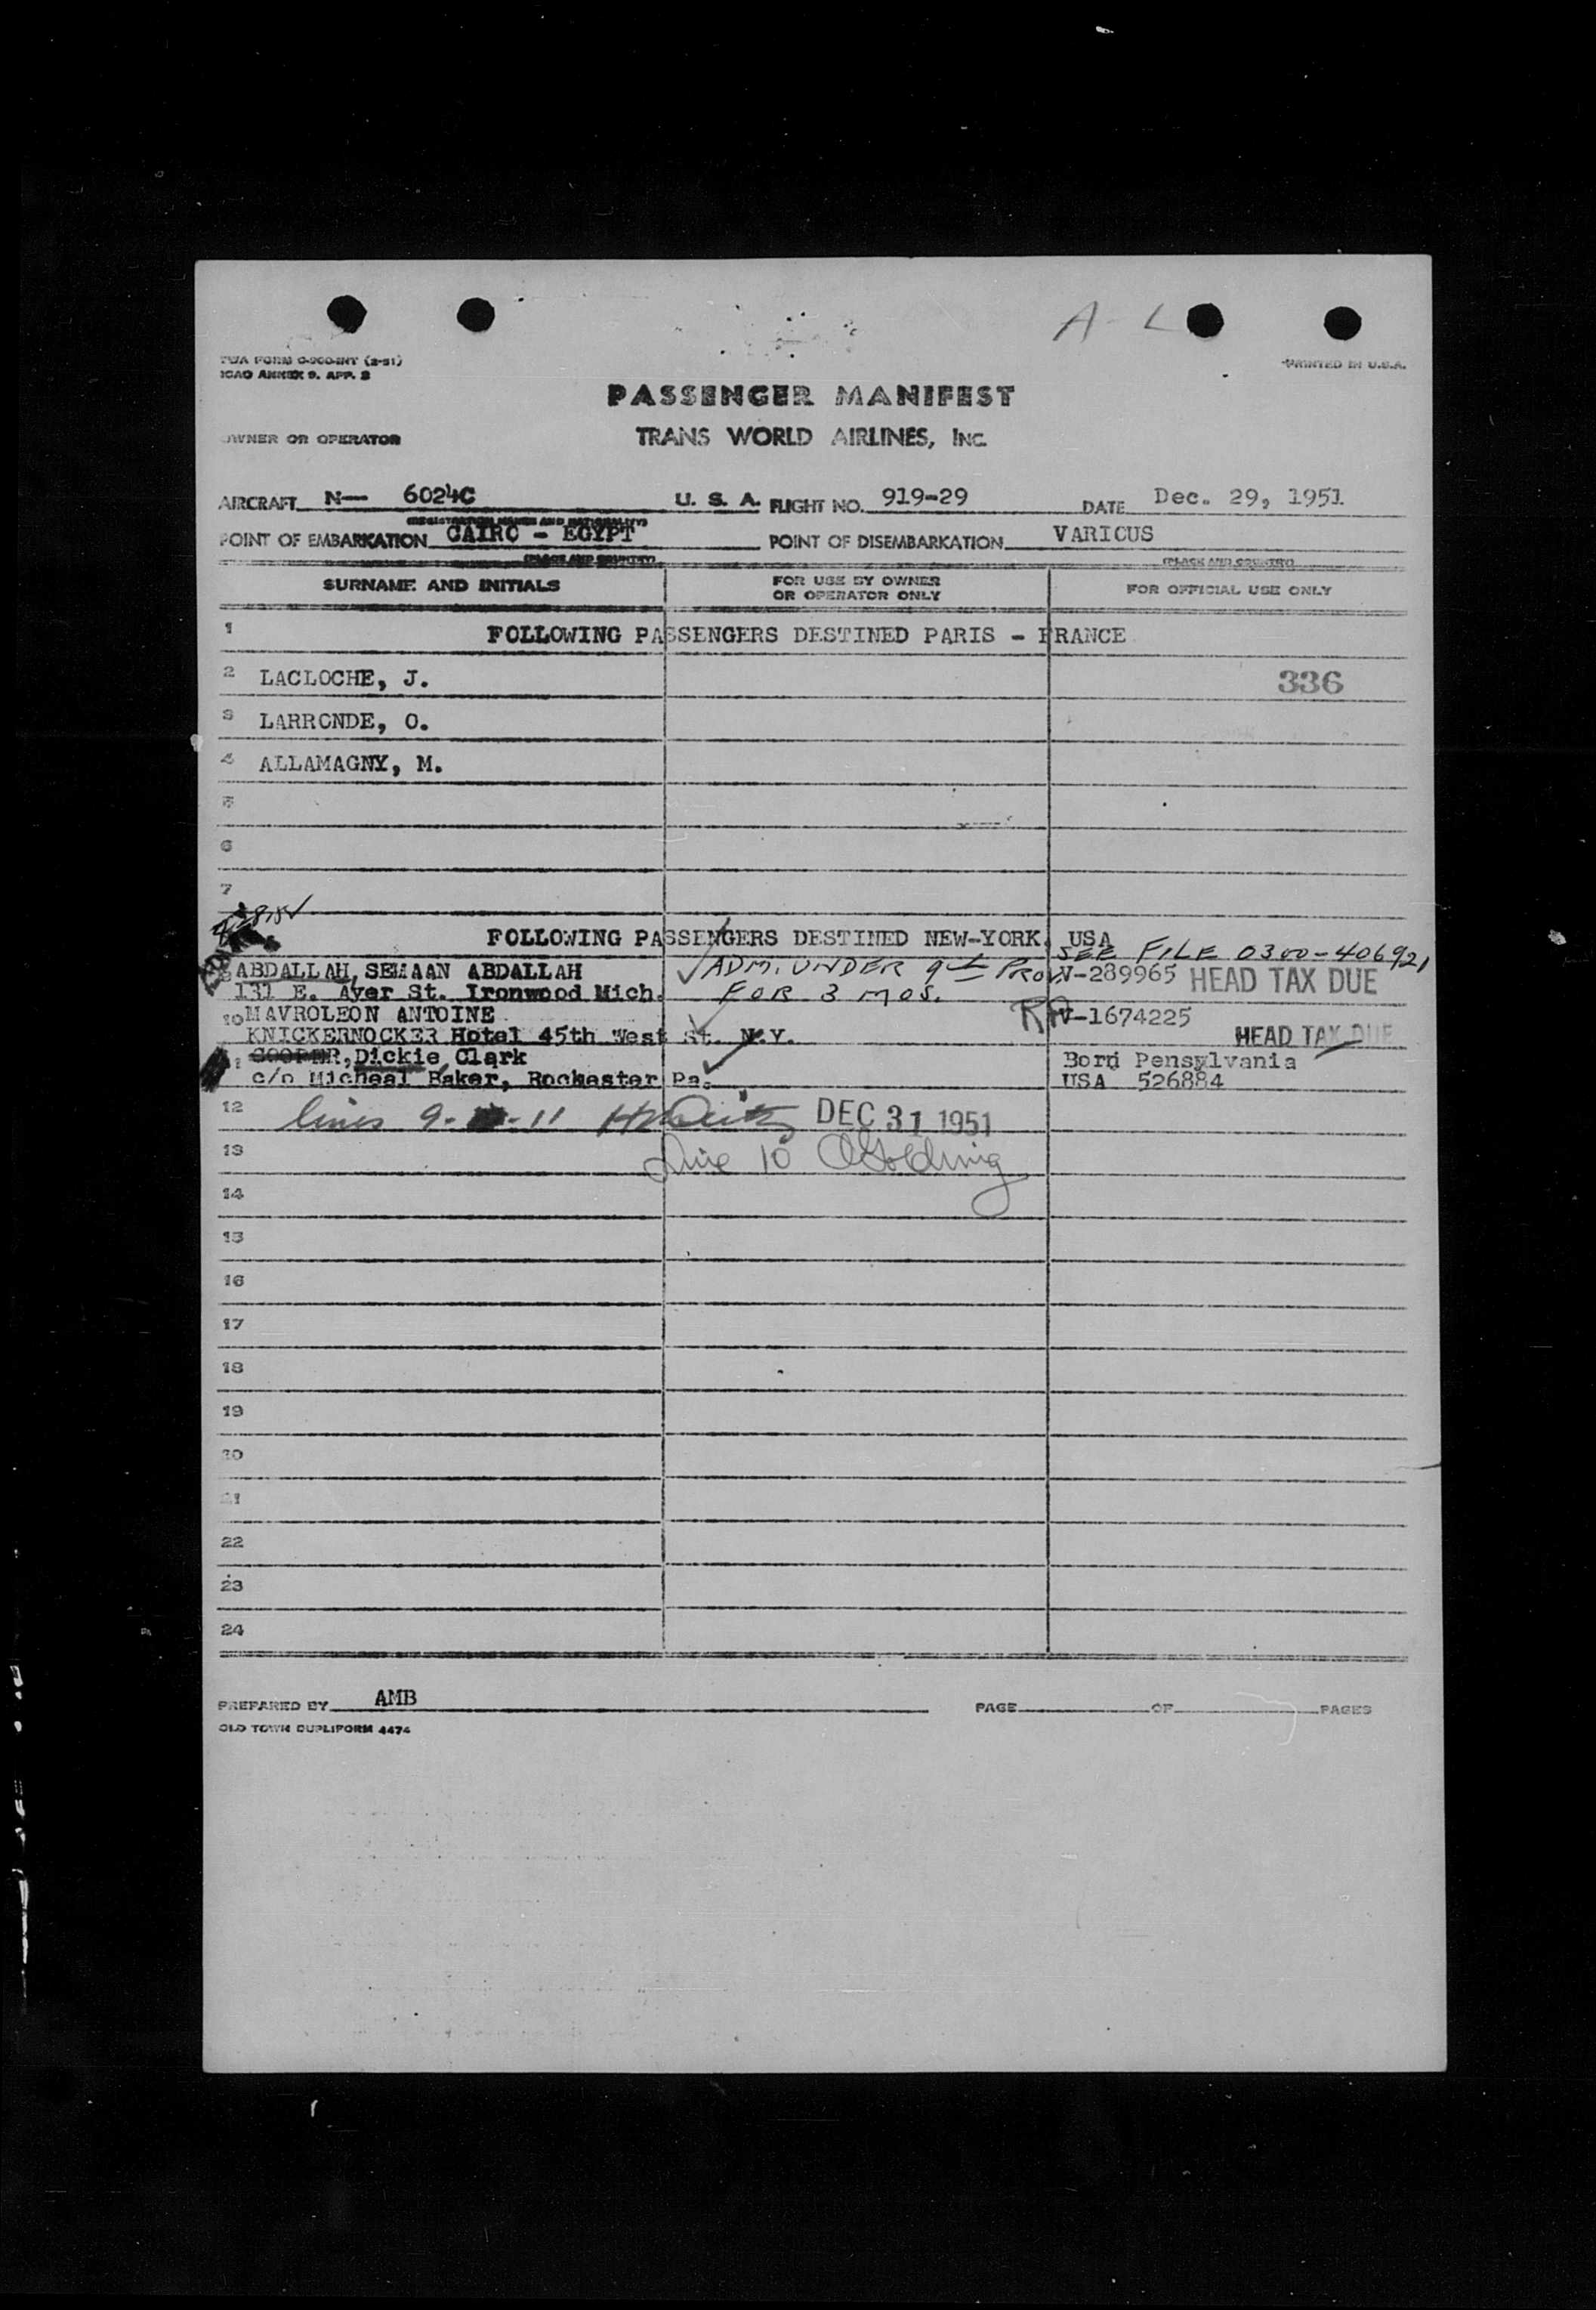 A-L
TWA FORM O-900-INT (2-51)
ICAO ANNEX 9. APP. 2
PRINTED IN U.S.A.
PASSENGER MANIFEST
OWNER OR OPERATOR TRANS WORLD AIRLINES, INC.
AIRCRAFT N— 6024C U. S. A. FLIGHT NO. 919-29 DATE Dec. 29, 1951
(REGISTRATION MARKS AND NATIONALITY)
POINT OF EMBARKATION CAIRO - EGYPT POINT OF DISEMBARKATION VARICUS
(PLACE AND COUNTRY) (PLACE AND COUNTRY)
SURNAME AND INITIALS FOR USE BY OWNER OR OPERATOR ONLY FOR OFFICIAL USE ONLY
1 FOLLOWING PASSENGERS DESTINED PARIS - FRANCE
2 LACLOCHE, J. 336
3 LARRONDE, O.
4 ALLAMAGNY, M.
5
6
7
FOLLOWING PASSENGERS DESTINED NEW-YORK, USA
SEE FILE 0300-406921
ABDALLAH, SEMAAN ABDALLAH ADM. UNDER 9th PROV. V-289965 HEAD TAX DUE
131 E. Ayer St. Ironwood Mich. FOR 3 MOS.
10 MAVROLEON ANTOINE V-1674225
KNICKERNOCKER Hotel 45th West St. N.Y. HEAD TAX DUE
COOPER, Dickie Clark Born Pensylvania
c/o Micheal Baker, Rochester Pa. USA 526884
12 lines 9- -11 DEC 31 1951
13 Line 10 Golding
14
15
16
17
18
19
20
21
22
23
24
PREPARED BY AMB PAGE OF PAGES
OLD TOWN DUPLIFORM 4474